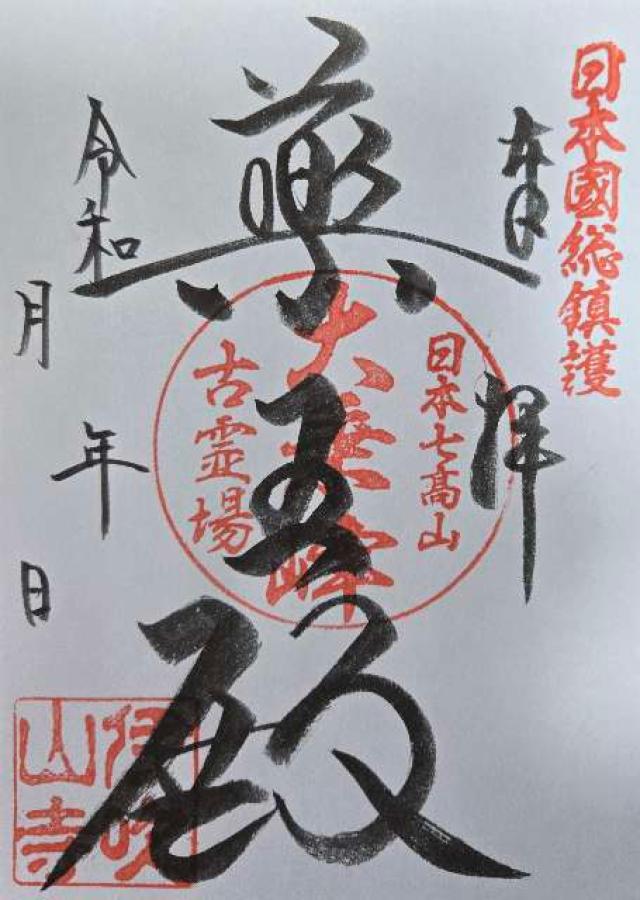 日本國総鎮護
奉拝
日本七高山
大乗峰
古霊場
薬
殿
令和 年
月 日
伊吹
山寺